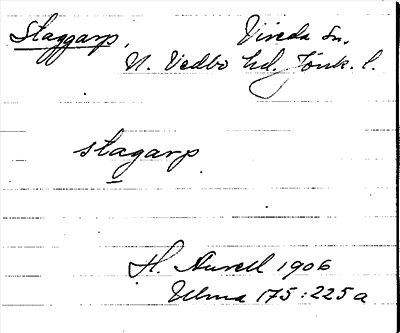 Staggarp, Vireda sn.
N. Vedbo hd. Jönk. l.
stagarp
H. Aurell 1906
Ulma 175:225a